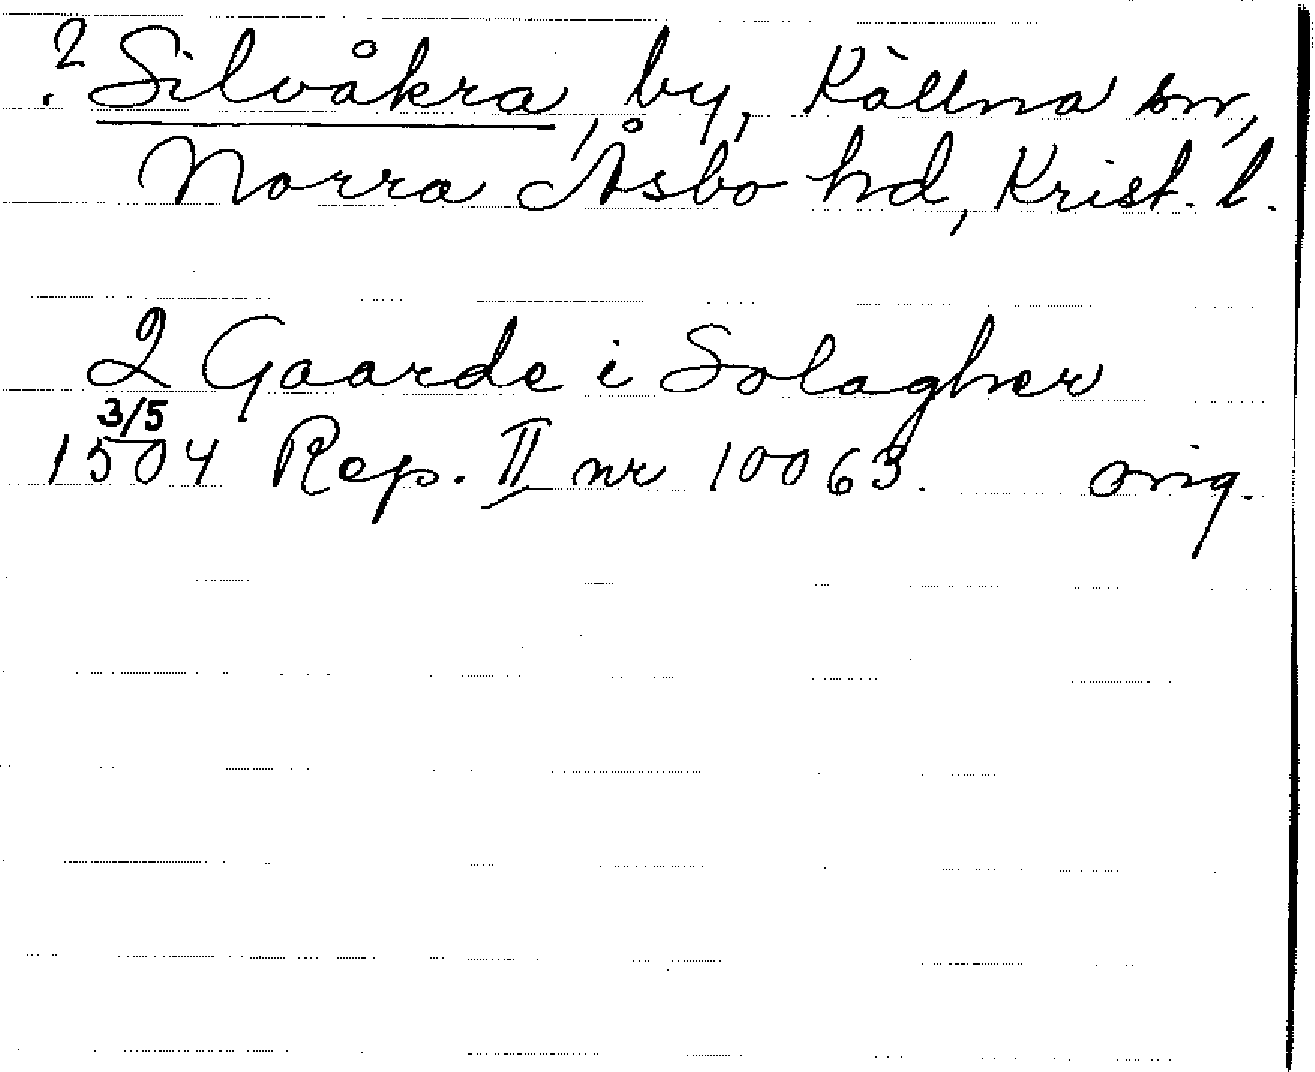 ? Silvåkra, by, Källna sn,
Norra Åsbo hd, Krist. l.
2 Gaarde i Solagher
3/5
1504 Rep. II nr 10063. orig.